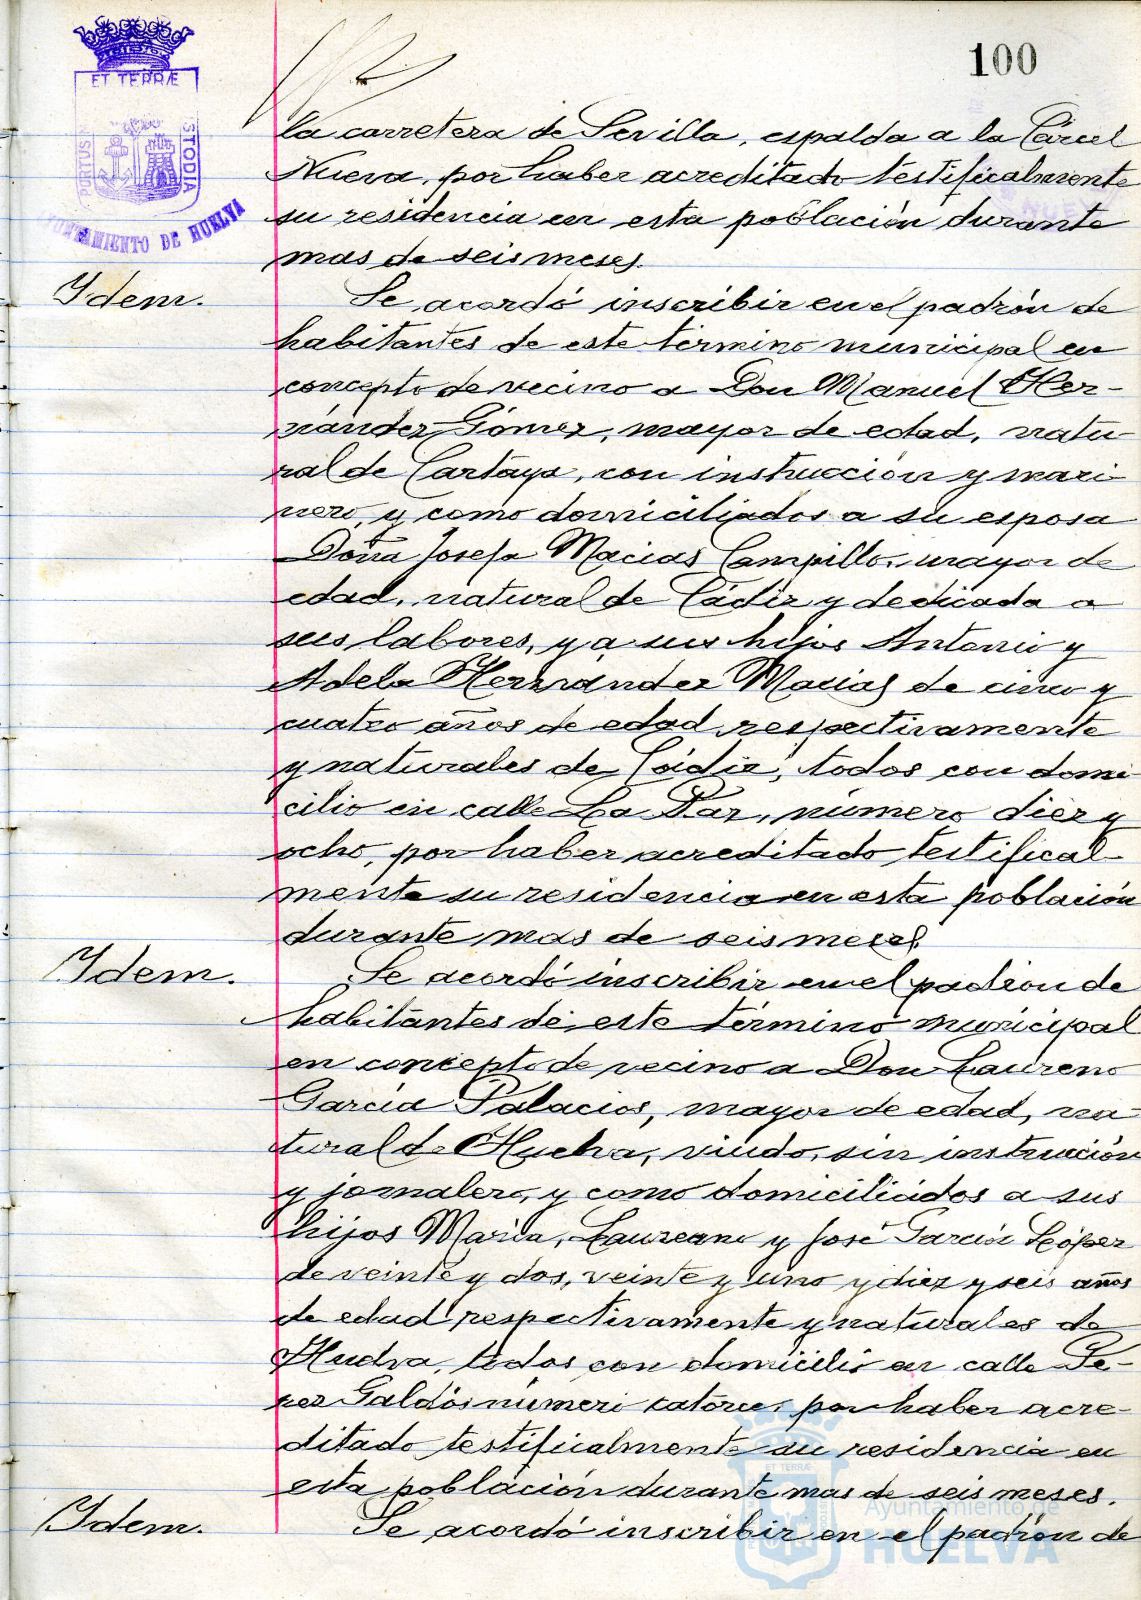 100
ET TERRÆ
PORTUS
STODIA
UNTAMIENTO DE HUELVA
la carretera de Sevilla, espalda a la Cárcel
Nueva, por haber acreditado testificalmente
su residencia en esta población durante
mas de seis meses.
Idem.
Se acordó inscribir en el padrón de
habitantes de este término municipal en
concepto de vecino a Don Manuel Her-
nández Gómez, mayor de edad, natu-
ral de Cartaya, con instrucción y mari-
nero, y como domiciliados a su esposa
Doña Josefa Macias Campillo, mayor de
edad, natural de Cádiz y dedicada a
sus labores, y a sus hijos Antonio y
Adela Hernández Macias de cinco y
cuatro años de edad respectivamente
y naturales de Cádiz, todos con domi-
cilio en calle La Paz, número diez y
ocho, por haber acreditado testifical-
mente su residencia en esta población
durante mas de seis meses.
Idem.
Se acordó inscribir en el padrón de
habitantes de este término municipal
en concepto de vecino a Don Laureno
García Palacios, mayor de edad, na-
tural de Huelva, viudo, sin instrucción
y jornalero, y como domiciliados a sus
hijos María, Laureano y José García López
de veinte y dos, veinte y uno y diez y seis años
de edad respectivamente y naturales de
Huelva, todos con domicilio en calle Pé-
rez Galdós número catorce, por haber acre-
ditado testificalmente su residencia en
esta población durante mas de seis meses.
Idem.
Se acordó inscribir en el padrón de
Ayuntamiento de
HUELVA